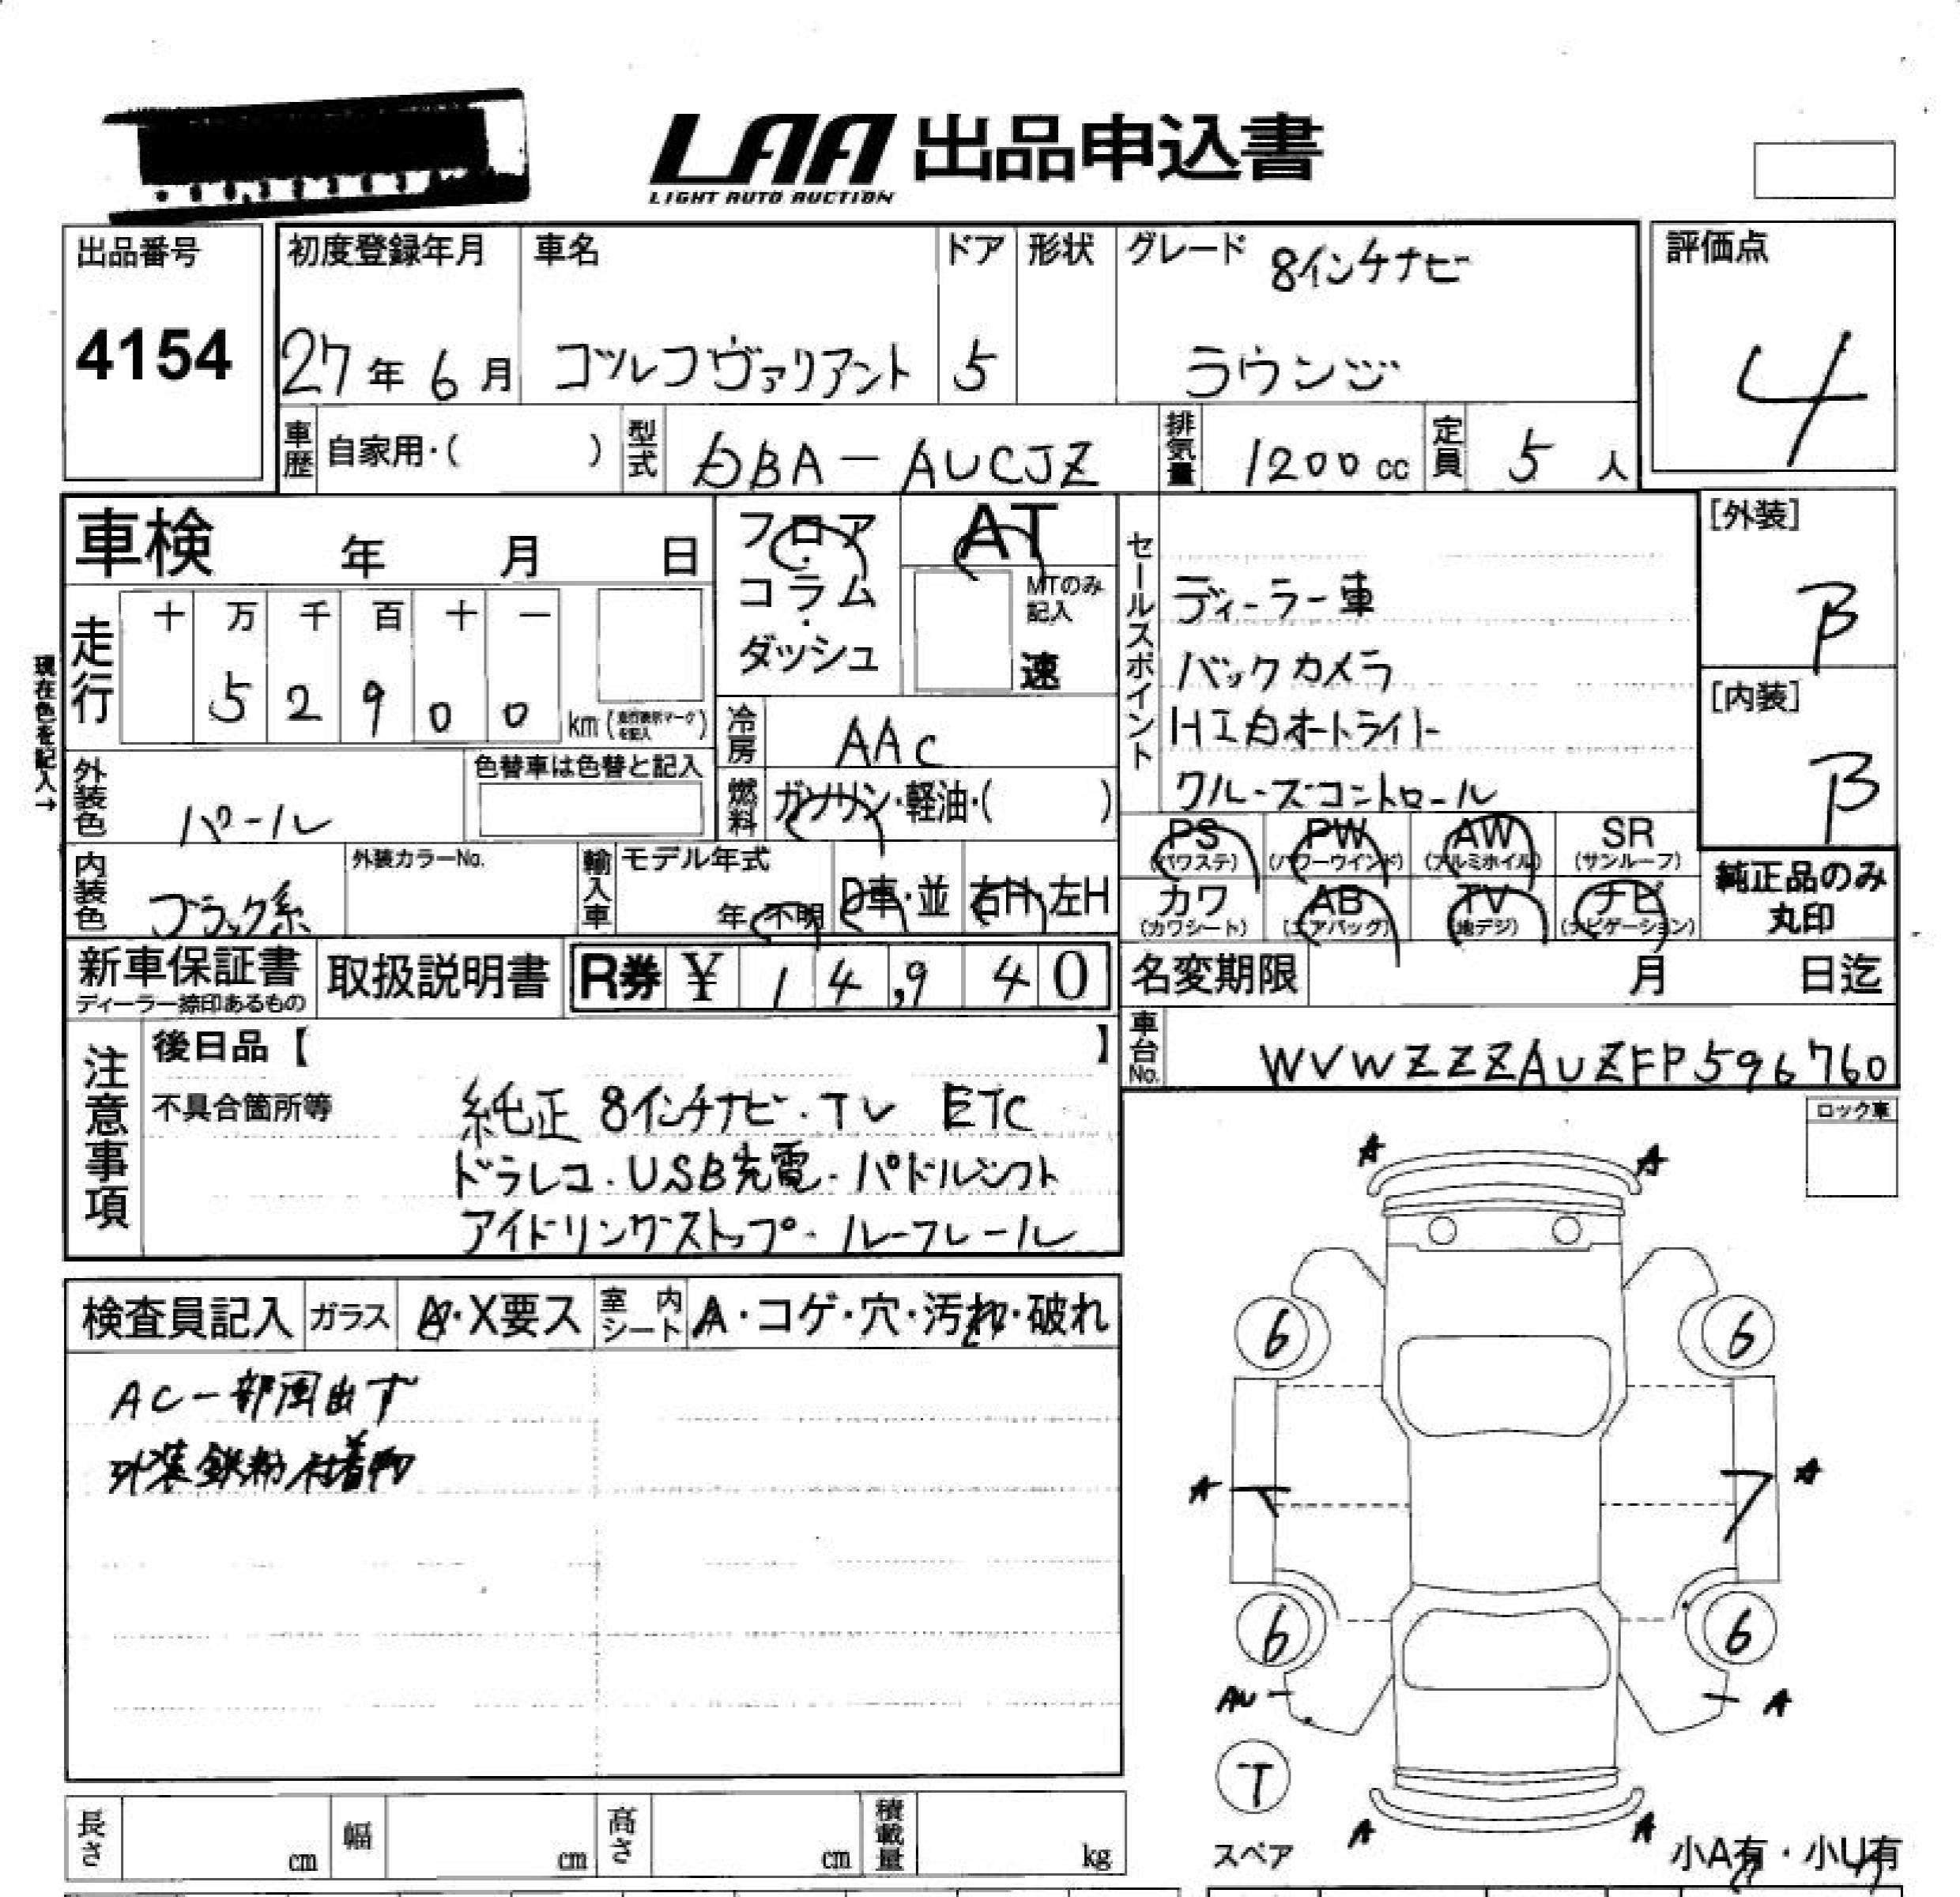 LAA 出品申込書
LIGHT AUTO AUCTION
出品番号
4154
初度登録年月
27年6月
車名
ゴルフヴァリアント
ドア
5
形状
グレード 8インチナビ
ラウンジ
評価点
4
車歴 自家用・( )
型式 DBA-AUCJZ
排気量 1200cc
定員 5人
車検 年 月 日
フロア・コラム・ダッシュ
AT
MTのみ記入
速
セールスポイント
ディーラー車
バックカメラ
HID オートライト
クルーズコントロール
[外装]
B
[内装]
B
現在色を記入→
走行
十 万 千 百 十 一
5 2 9 0 0 km (走行表示マークを記入)
冷房 AAC
燃料 ガソリン・軽油・( )
外装色 パール
色替車は色替と記入
内装色 ブラック系
外装カラーNo.
輸入車
モデル年式
年 不明
D車・並
右H 左H
PS (パワステ)
PW (パワーウインド)
AW (アルミホイル)
SR (サンルーフ)
カワ (カワシート)
AB (エアバック)
TV (地デジ)
ナビ (ナビゲーション)
純正品のみ丸印
新車保証書
ディーラー捺印あるもの
取扱説明書
R券 ¥ 14,940
名変期限 月 日迄
車台No. WVWZZZAUZFP596760
注意事項
後日品【 】
不具合箇所等
純正 8インチナビ・TV ETC
ドラレコ・USB充電・パドルシフト
アイドリングストップ・ルーフレール
ロック車
検査員記入
ガラス A・X要ス
室内シート A・コゲ・穴・汚れ・破れ
AC一部風出ず
外装鉄粉付着有
A A
6 6
A A
6 6
AU A
T
スペア
A A
小A有・小U有
長さ cm
幅 cm
高さ cm
積載量 kg